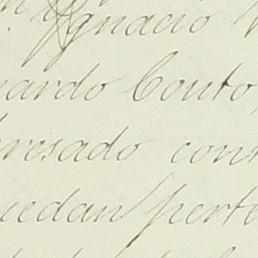 Ignacio
ardo Couto
resado con
uedan perte